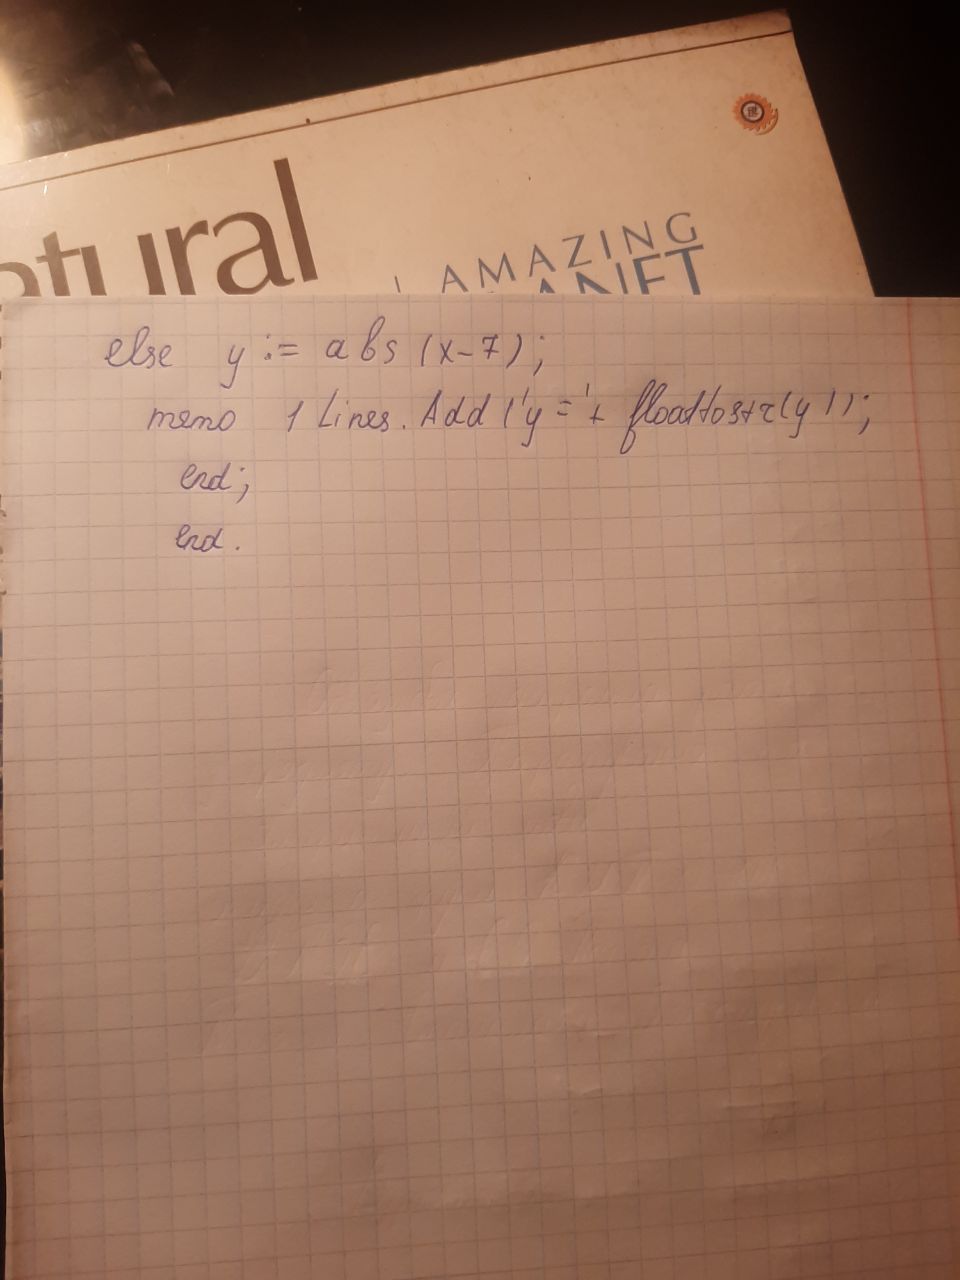 atural
AMAZING
else y := abs (x-7);
memo 1 Lines. Add ('y = '+ floattostr(y));
end;
end.